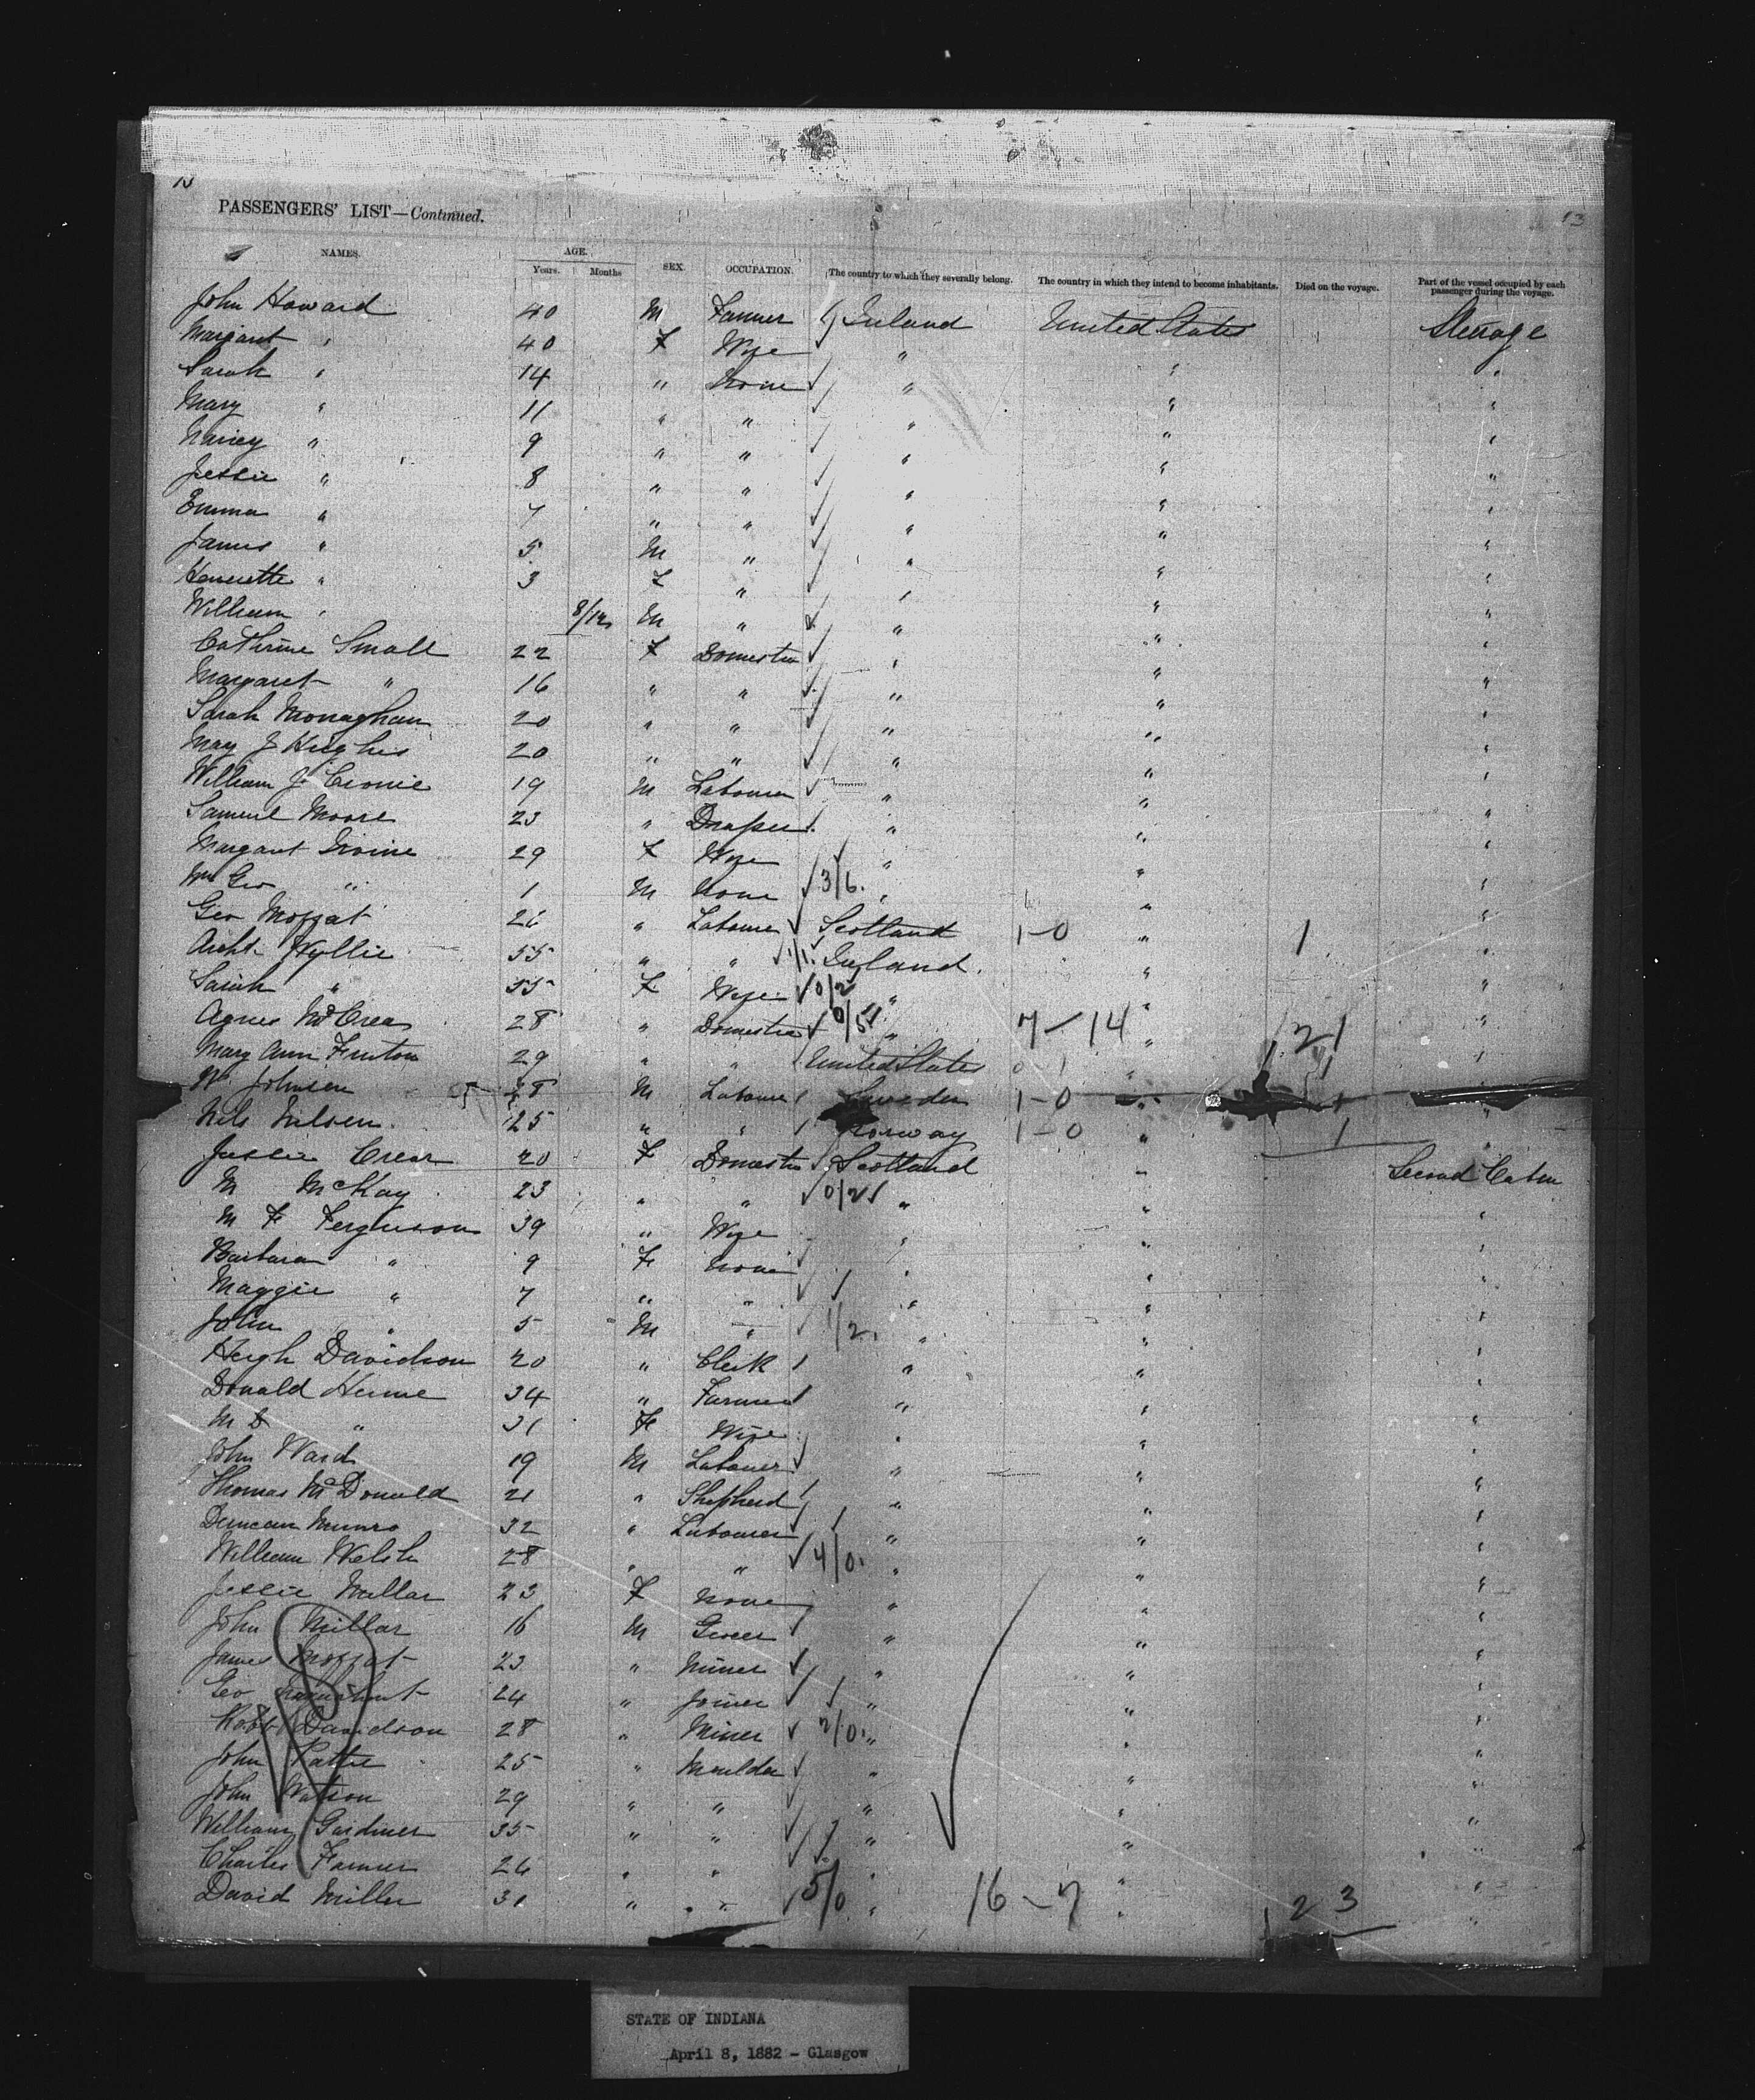 13
13
PASSENGERS' LIST—Continued.
NAMES. AGE. SEX. OCCUPATION. The country to which they severally belong. The country in which they intend to become inhabitants. Died on the voyage. Part of the vessel occupied by each passenger during the voyage.
Years. Months
John Howard 40 M Farmer Ireland United States Steerage
Margaret " 40 F Wife " " "
Sarah " 14 " None " " "
Mary " 11 " " " " "
Nancy " 9 " " " " "
Jessie " 8 " " " " "
Emma " 7 " " " " "
James " 5 M " " " "
Henriette " 3 F " " " "
William " 8/12 M " " " "
Cathrine Small 22 F Domestic " " "
Margaret " 16 " " " " "
Sarah Monaghan 20 " " " " "
May J Hughes 20 " " " " "
William J 19 M Labourer " " "
Samuel Moore 23 " Draper " " "
Margaret Irvine 29 F Wife " " "
Wm Geo " 1 M None 3/6. " " "
Geo Moffat 26 " Labourer Scotland 1-0 " 1 "
Archd Wyllie 55 " " 1/1. Ireland. " "
Sarah " 55 F Wife 0/2 " " "
Agnes McCrea 28 " Domestic 0/5 " 7-14 " 21 "
Mary Ann Fenton 29 " " United States 0-1 " 1 "
Johnsen 28 M Labourer Sweden 1-0 " 1 "
Nils Nilsen. 25 " " Norway 1-0 " 1 "
Jessie Crear 20 F Domestic Scotland " Second Cabin
M McKay 23 " " 0/2 " " "
M F Ferguson 39 " Wife " " "
Barbara " 9 F None " " "
Maggie " 7 " " " " "
John " 5 M " 1/2. " " "
Hugh Davidson 20 " Clerk " " "
Donald Hume 34 " Farmer " " "
M " 31 F Wife " " "
John Ward 19 M Labourer " " "
Thomas McDonald 21 " Shepherd " " "
Duncan Munro 32 " Labourer " " "
William Welsh 28 " " 4/0. " " "
Jessie Millar 23 F None " " "
John Millar 16 M Grocer " " "
James Moffat 23 " Miner " " "
Geo 24 " Joiner " " "
Robt Davidson 28 " Miner 2/0. " " "
John Pattie 25 " Moulder " " "
John Watson 29 " " " " "
William Gardiner 35 " " " " "
Charles Farmer 26 " " " " "
David Miller 31 " " 5/0 " 16-7 " 23 "
STATE OF INDIANA
April 8, 1882 - Glasgow